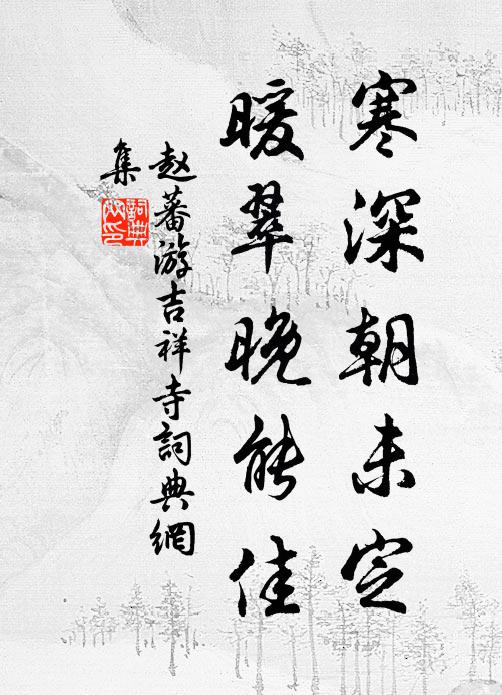 寒深朝未定
暖翠晚能佳
赵蕃游吉祥寺詞典網
集
詞典网印